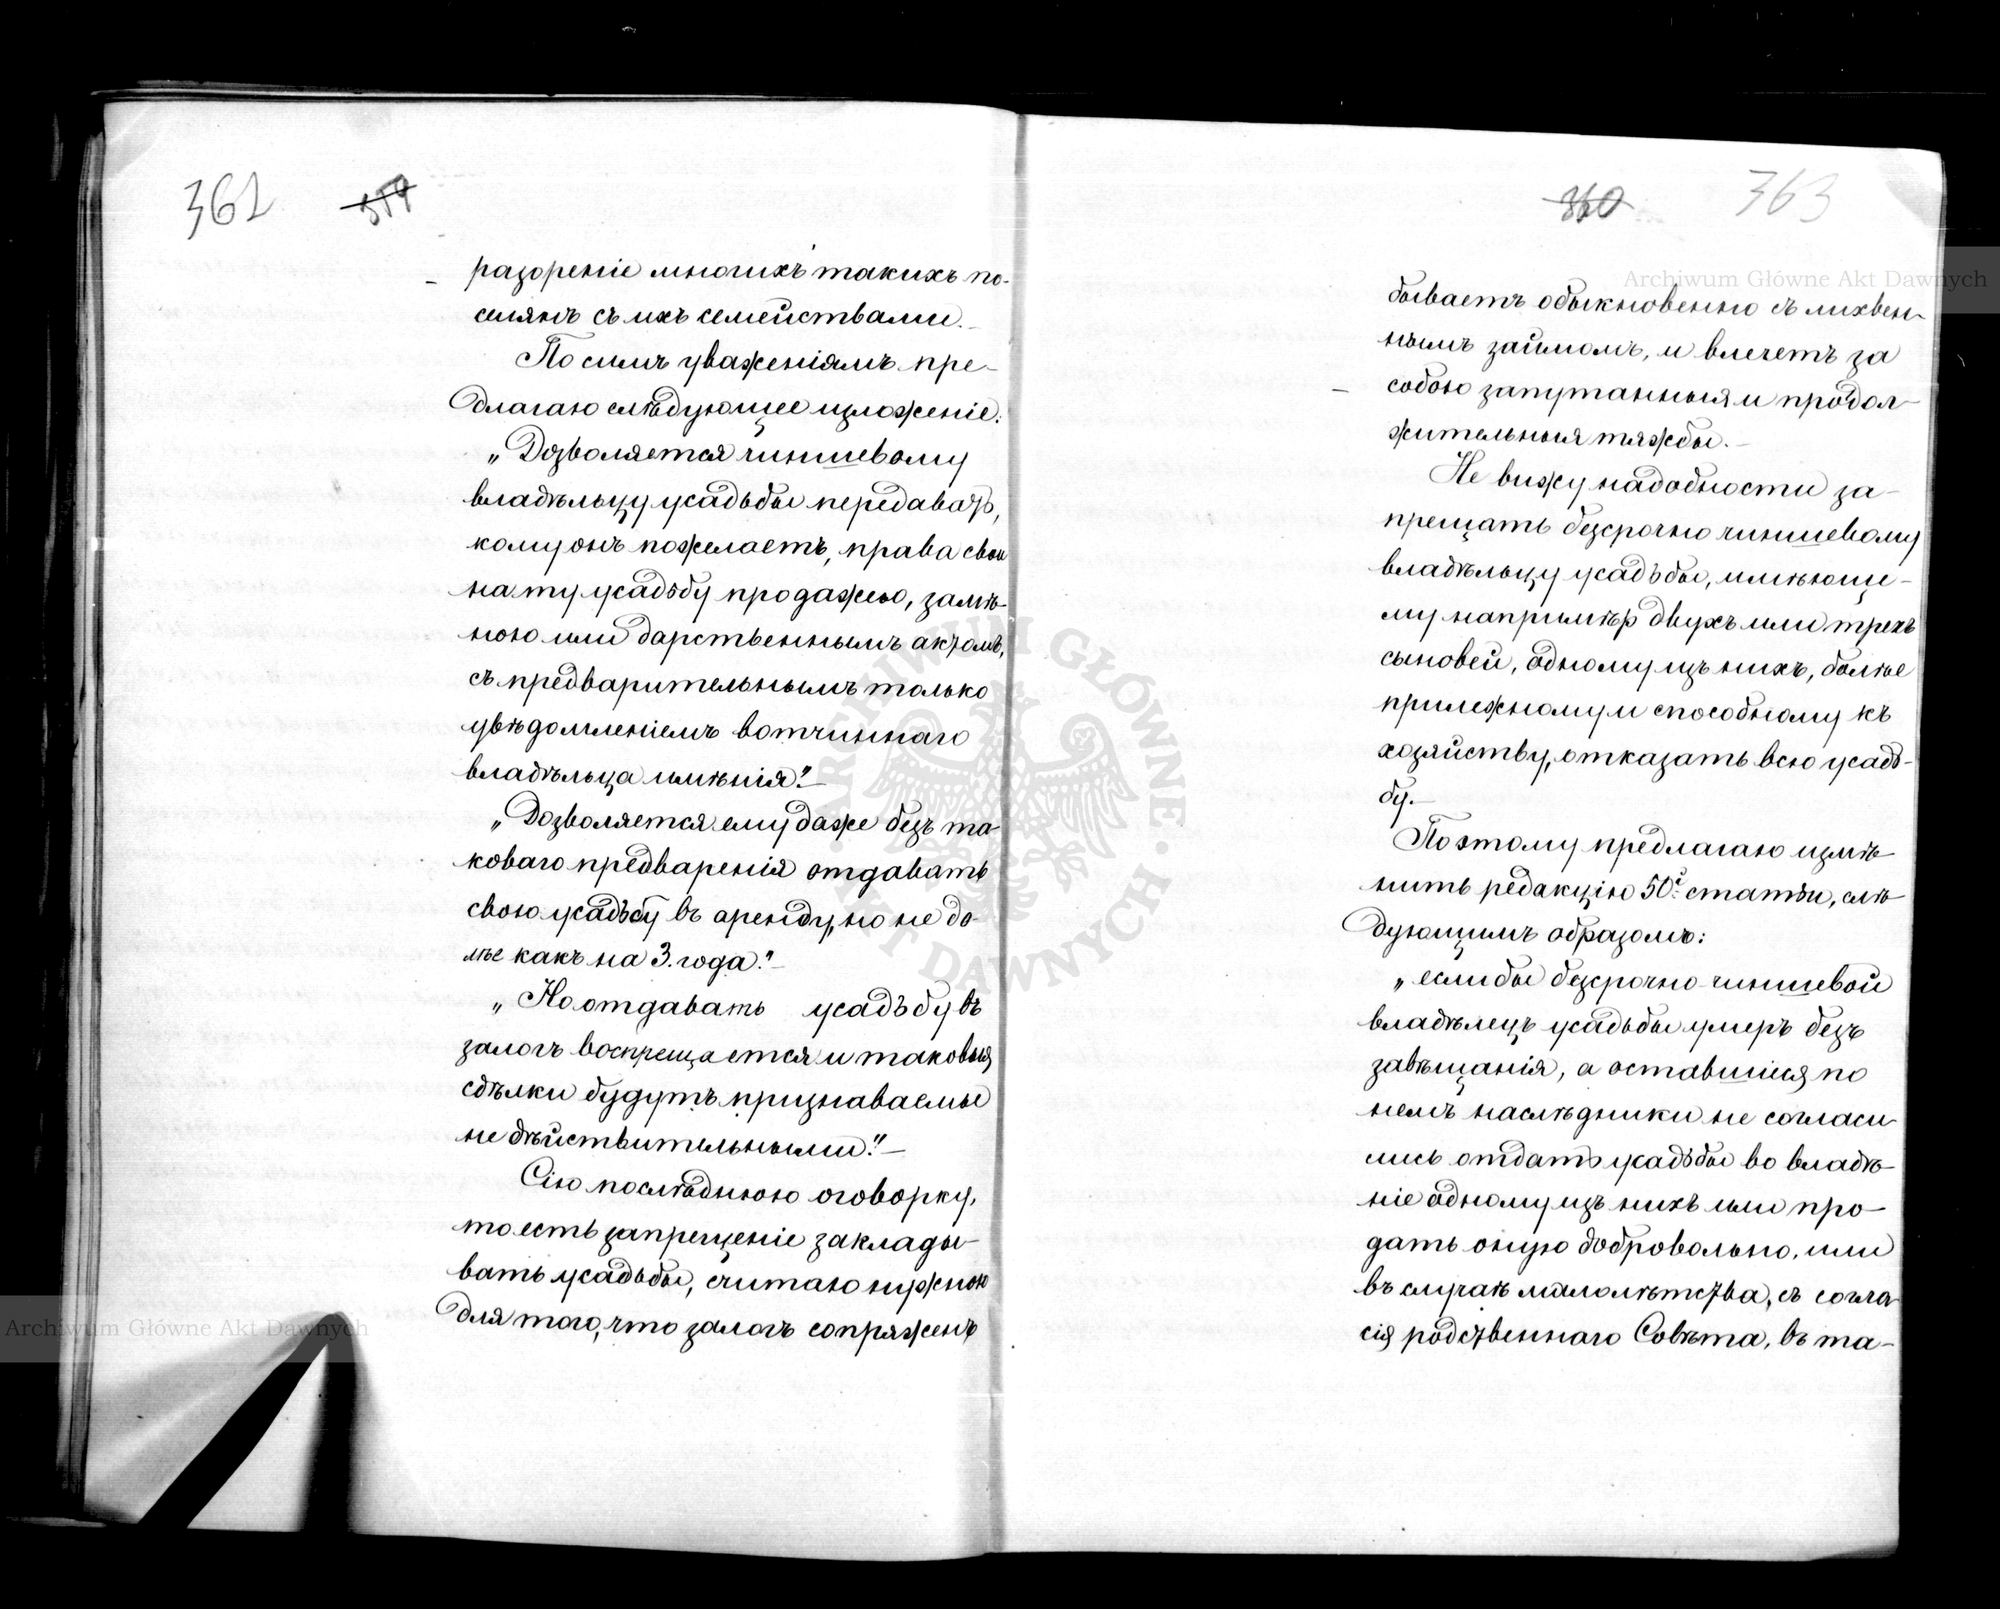 362
359
разореніе многихъ такихъ по-
селянъ съ ихъ семействами.
По симъ уваженіямъ пре-
длагаю слѣдующее изложеніе:
„Дозволяется чиншевому
владѣльцу усадьбы передавать,
кому онъ пожелаетъ, права свои
на ту усадьбу продажею, замѣ-
ною или дарственнымъ актомъ,
съ предварительнымъ только
увѣдомленіемъ вотчиннаго
владѣльца имѣнія."—
„Дозволяется ему даже безъ та-
коваго предваренія отдавать
свою усадьбу въ аренду, но не до-
лѣе какъ на 3. года."—
„Но отдавать усадьбу въ
залогъ воспрещается и таковыя
сдѣлки будутъ признаваемы
не дѣйствительными."—
Сію послѣднюю оговорку,
то есть запрещеніе заклады-
вать усадьбы, считаю нужною
для того, что залогъ сопряженъ
360
363
бываетъ обыкновенно съ лихвен-
нымъ займомъ, и влечетъ за
собою запутанныя и продол-
жительныя тяжбы.—
Не вижу надобности за-
прещать безсрочно чиншевому
владѣльцу усадьбы, имѣюще-
му напримѣръ двухъ или трехъ
сыновей, одному изъ нихъ, болѣе
прилежному и способному къ
хозяйству, отказать всю усадь-
бу.—
Поэтому предлагаю измѣ-
нить редакцію 50й статьи, слѣ-
дующимъ образомъ:
„если бы безсрочно-чиншевой
владѣлецъ усадьбы умеръ безъ
завѣщанія, а оставшіеся по
немъ наслѣдники не согласи-
лись отдать усадьбы во владѣ-
ніе одному изъ нихъ или про-
дать оную добровольно, или
въ случаѣ малолѣтства, съ согла-
сія родственнаго Совѣта, въ та-
Archiwum Główne Akt Dawnych
Archiwum Główne Akt Dawnych
ARCHIWUM GŁÓWNE AKT DAWNYCH